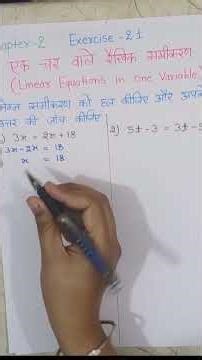 Chapter-2 Exercise-2.1
एक चर वाले रैखिक समीकरण
(Linear Equations in one Variable)
समीकरण को हल कीजिए और
उत्तर की जाँच कीजिए
3x = 2x + 18
3x - 2x = 18
x = 18
2) 5t - 3 = 3t - 5